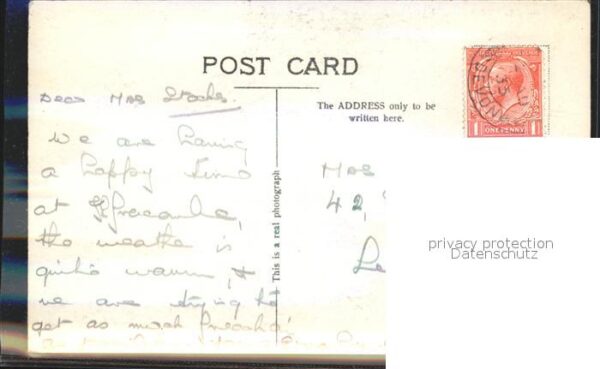 POST CARD
Dear Mrs
The ADDRESS only to be
written here.
DEVON
ONE PENNY
1 1
This is a real photograph
We are having
a happy time
at Ilfracombe,
the weather is
quite warm, &
we are trying to
get as much
Mrs
42,
privacy protection
Datenschutz